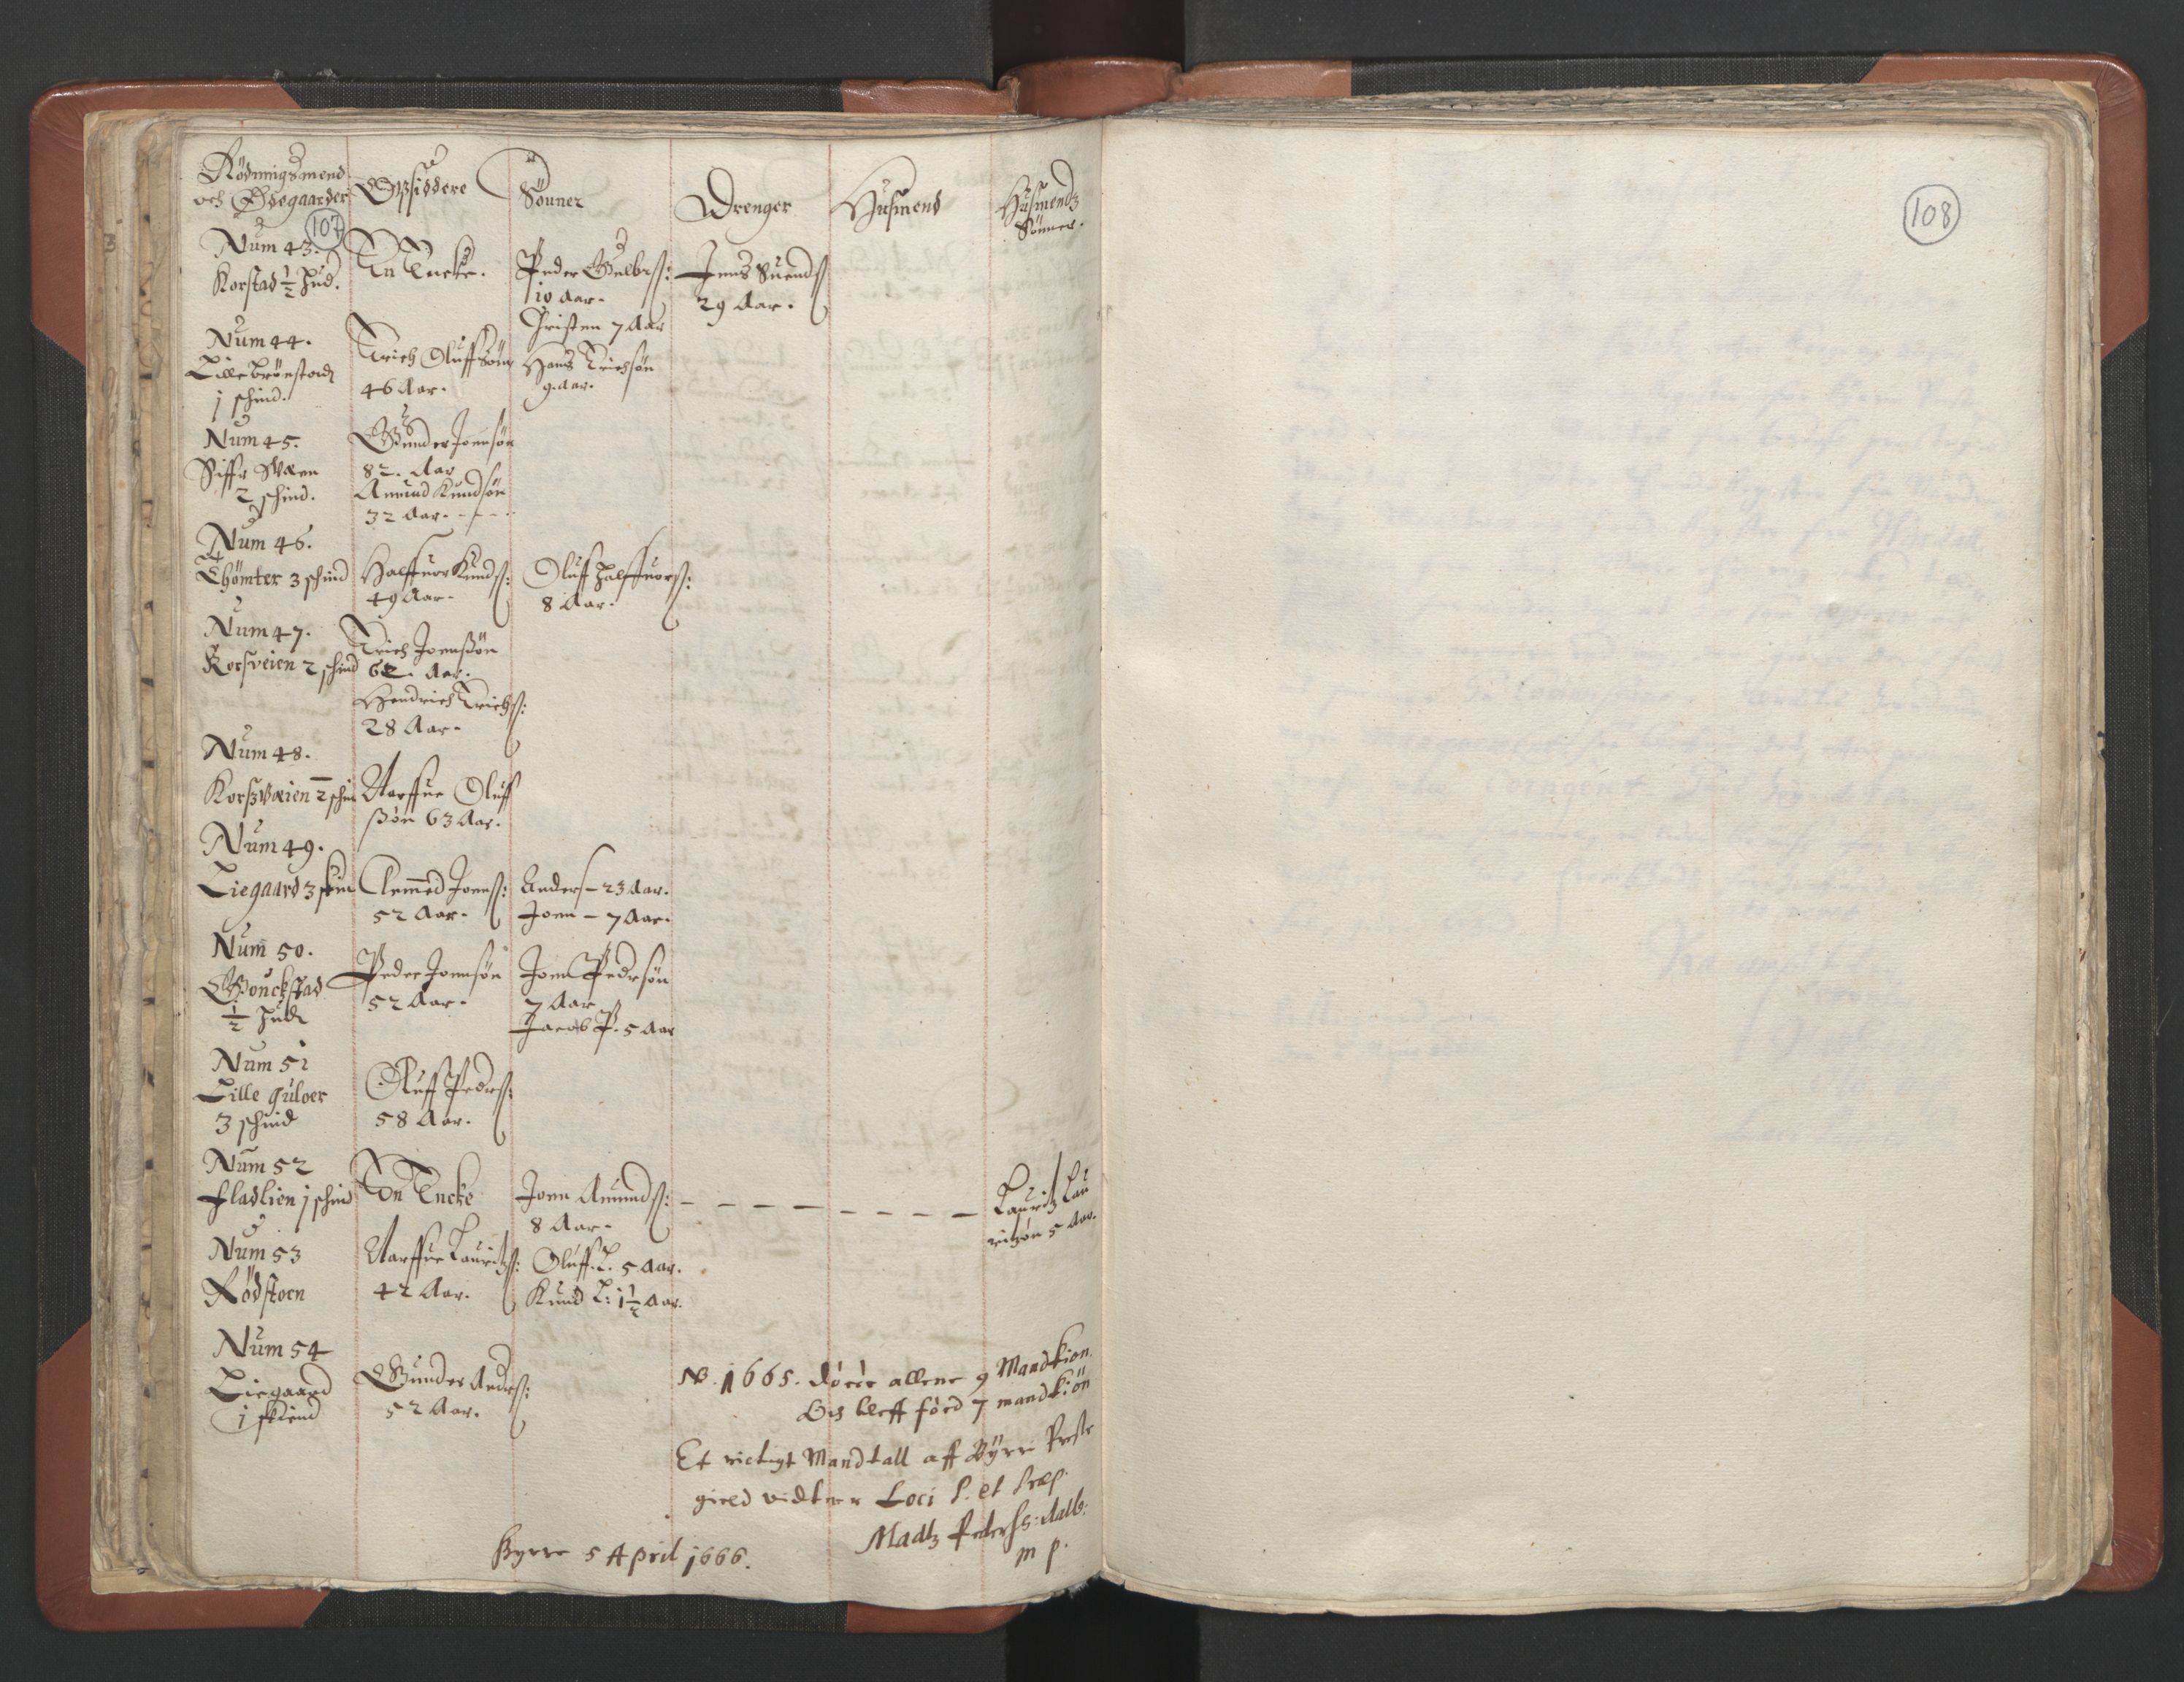 Rödningsmend
och Ödegaarder
Opsiddere
Sönner
Drenger
Husmend
Husmends
Sönner.
107
Num 43.
Korstad ½ Hud.
En Encke.
Peder Gulbrs:
10 Aar.
Christen 7 Aar
Jens Suends
29 Aar.
Num 44.
Lille Brönstad
1 schind.
Erich Oluffsön
46 Aar.
Hans Erichsön
9. Aar.
Num 45.
2 schind.
Gunder Joensön
82. Aar
Amund Knudsön
32 Aar.
Num 46.
3 schind
Halffuor Knuds:
49 Aar.
Oluf Halffuors:
8 Aar.
Num 47.
Korsveien 2 schind
Erich Joensßön
Aar.
Hendrich Erichs:
28 Aar.
Num 48.
Korßvæien 2 schin
Narffue Oluff
ßön 63 Aar.
Num 49.
Liegaard 3 skin
Clemmed Joens:
52 Aar.
Anders – 23 Aar.
Joen – 7 Aar.
Num 50.
Gonckstad
½ Hud
Peder Joensön
52 Aar.
Joen Pedrsön
7 Aar
Jacob P. 5 Aar
Num 51
Lille Guloer
3 schind
Oluff Peders:
58 Aar.
Num 52
Fladlien 1 schind
En Encke
Joen Amunds:
8 Aar.
Lauritz Lau
ritzön 5 Aar.
Num 53
Rödstoen
Narffue Lauritzs:
42 Aar.
Oluff. L. 5 Aar.
Knud L: 1½ Aar.
Num 54
Liegaard
1 skiend
Gunder Anders:
52 Aar.
NB. 1665. döde allene 9 Mandkion.
Och bleff föed 7 mandkiön
Et rictigt Mandtall aff Byrre Preste
gield vidner Loci P. et Præp.
Madtz Peders: Aalb:
m p.
Byrre 5 April 1666.
108